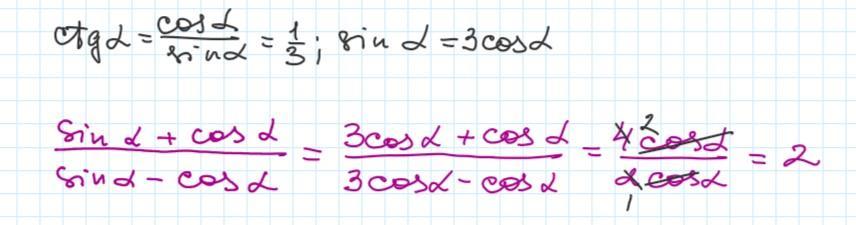 ctg α = cos α / sin α = 1/3 ; sin α = 3cos α
(sin α + cos α) / (sin α - cos α) = (3cos α + cos α) / (3cos α - cos α) = 4 2 cos α / 2 1 cos α = 2